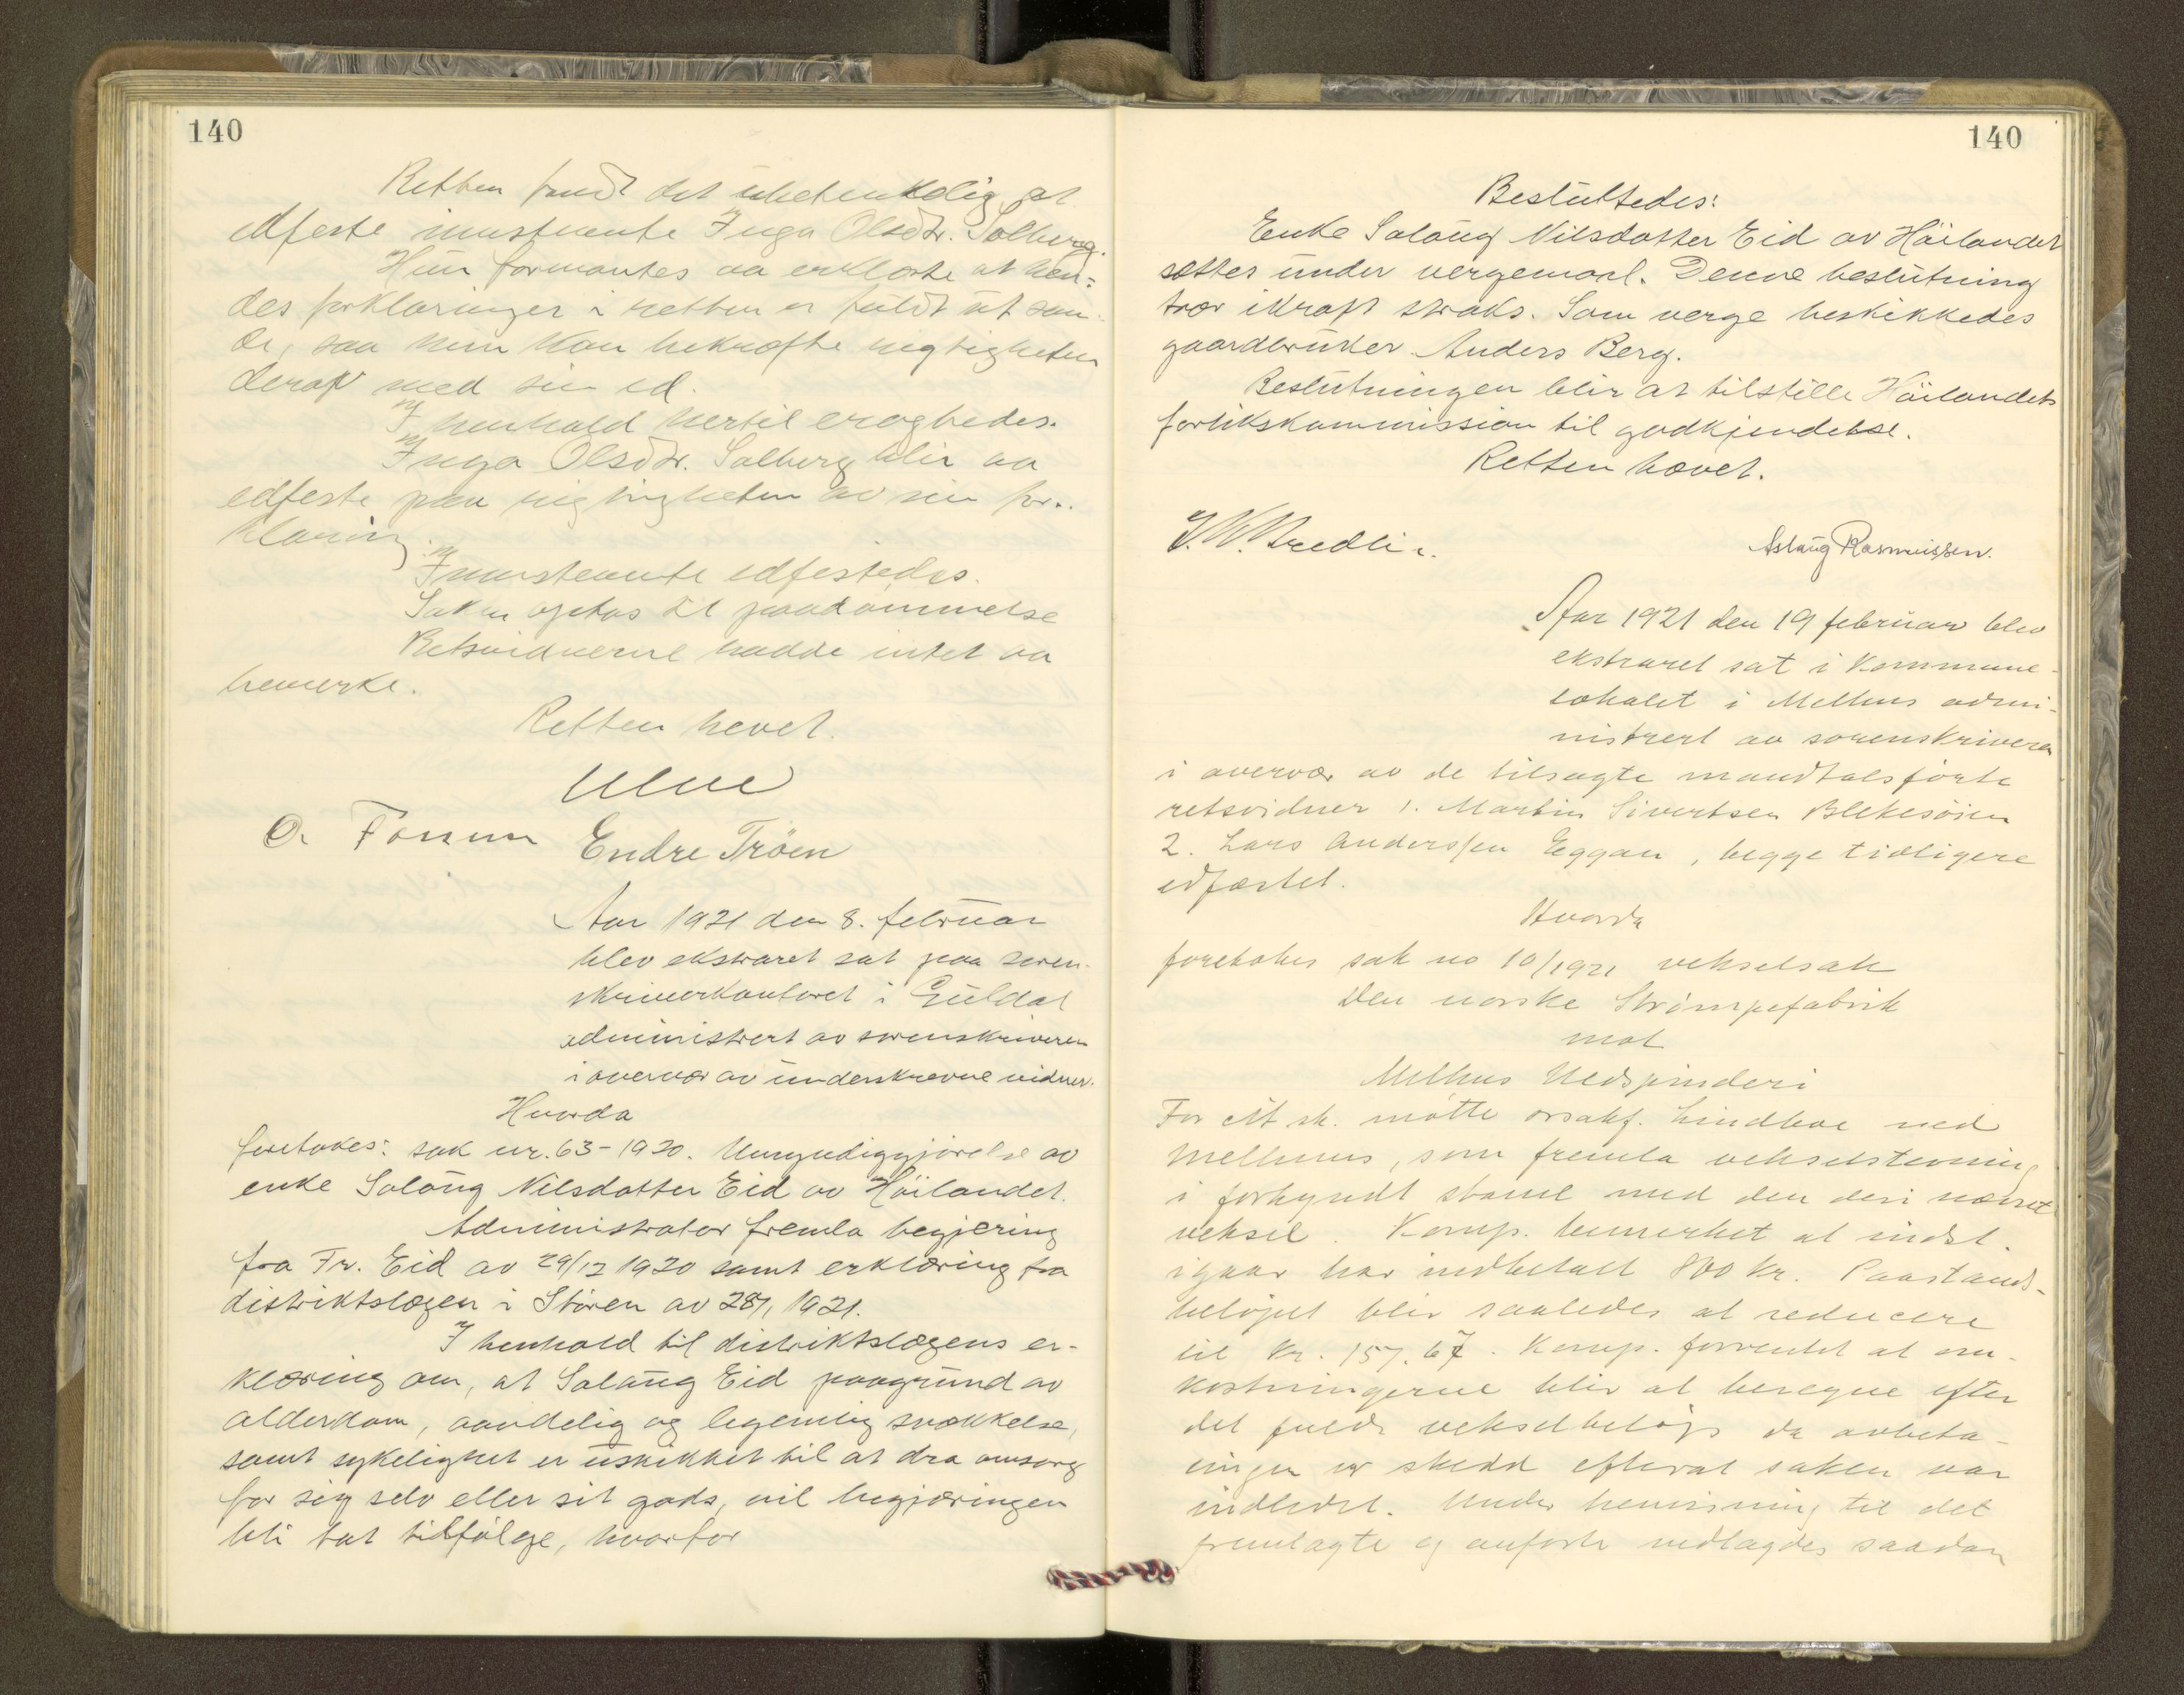 140
Retten fandt det ubetenkelig at
edfeste inustevnte Inga Olsdtr. Solberg.
Hun formantes aa erklærte at hen=
des forklaringer i retten er fuldt ut san-
de, saa hun kan bekræfte rigtigheten
derav med sin ed.
I henhold hertil eragtedes.
Inga Olsdtr. Solberg blir aa
edfeste paa rigtigheten av sin for-
klaring.
Innstevnte edfestedes.
Saken optas til paadømmelse
Retsvidnerne hadde intet aa
bemerke.
Retten hevet.
O. Fossum Endre Trøen
Aar 1921 den 8. februar
blev ekstraret sat paa soren-
skriverkontoret i Guldal
administrert av sorenskriveren
i overvær av underskrevne vidner.
Hvorda
foretokes: sak nr. 63-1920. Umyndiggjørelse av
enke Solaug Nilsdatter Eid av Høilandet.
Administrator fremla begjering
fra Fr. Eid av 29/12 1920 samt erklæring fra
distriktslægen i Støren av 28/1 1921.
I henhold til distriktslægens er-
klæring om, at Solaug Eid paagrund av
alderdom, aandelig og legemlig svækkelse,
samt sykelighet er uskikket til at dra omsorg
for sig selv eller sit gods, vil begjæringen
bli tat tilfølge, hvorfor
140
Besluttedes:
Enke Solaug Nilsdatter Eid av Høilandet
sættes under vergemaal. Denne beslutning
trær ikraft straks. Som verge beskikkedes
gaardbruker Anders Berg.
Beslutningen blir at tilstille Høilandets
forlikskommission til godkjendelse.
Retten hævet.
Aslaug Rasmussen.
Aar 1921 den 19 februar blev
ekstraret sat i Kommune-
lokalet i Melhus admi-
nistrert av sorenskriveren
i overvær av de tilsagte mandtalsførte
retsvidner 1. Martin Sivertsen Blekesøien
2. Lars Anderssen Eggan, begge tidligere
edfæstet.
Hvorda
foretokes sak no 10/1921 vekselsak
Den norske Strømpefabrik
mot
Melhus Uldspinderi
For cit.sk. møtte orsakf. Lindboe ved
Mellemus, som fremla vekselstevning
i forkyndt stand med den deri nævnte
veksel. Komp. bemerket at indst.
igaar har indbetalt 800 kr. Paastands-
beløpet blir saaledes at reducere
til kr. 157.67. Komp. forventet at om-
kostningerne blir at beregne efter
det fulde vekselbeløp da avbeta-
lingen er skedd efterat saken var
indledet. Under henvisning til det
fremlagte og anførte nedlagdes saadan